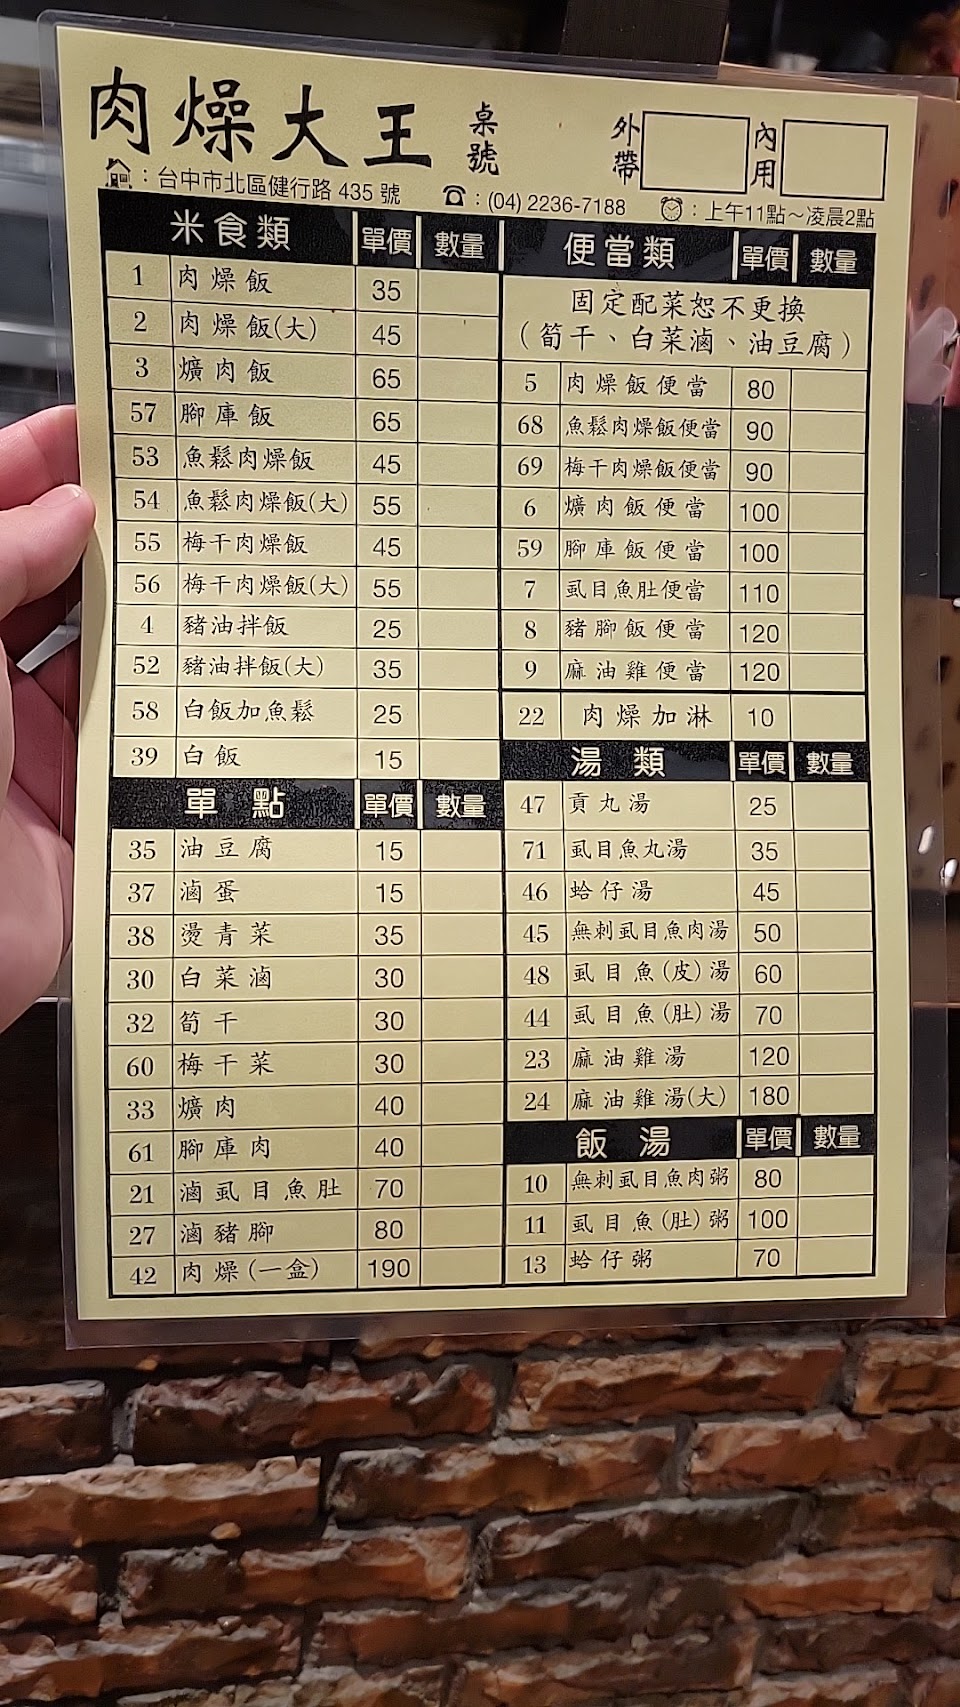 肉燥大王 桌號 外帶 內用
：台中市北區健行路 435 號 ：(04) 2236-7188 ：上午11點～凌晨2點
米食類 單價 數量
1 肉燥飯 35
2 肉燥飯(大) 45
3 爌肉飯 65
57 腳庫飯 65
53 魚鬆肉燥飯 45
54 魚鬆肉燥飯(大) 55
55 梅干肉燥飯 45
56 梅干肉燥飯(大) 55
4 豬油拌飯 25
52 豬油拌飯(大) 35
58 白飯加魚鬆 25
39 白飯 15
單點 單價 數量
35 油豆腐 15
37 滷蛋 15
38 燙青菜 35
30 白菜滷 30
32 筍干 30
60 梅干菜 30
33 爌肉 40
61 腳庫肉 40
21 滷虱目魚肚 70
27 滷豬腳 80
42 肉燥(一盒) 190
便當類 單價 數量
固定配菜恕不更換
(筍干、白菜滷、油豆腐)
5 肉燥飯便當 80
68 魚鬆肉燥飯便當 90
69 梅干肉燥飯便當 90
6 爌肉飯便當 100
59 腳庫飯便當 100
7 虱目魚肚便當 110
8 豬腳飯便當 120
9 麻油雞便當 120
22 肉燥加淋 10
湯類 單價 數量
47 貢丸湯 25
71 虱目魚丸湯 35
46 蛤仔湯 45
45 無刺虱目魚肉湯 50
48 虱目魚(皮)湯 60
44 虱目魚(肚)湯 70
23 麻油雞湯 120
24 麻油雞湯(大) 180
飯湯 單價 數量
10 無刺虱目魚肉粥 80
11 虱目魚(肚)粥 100
13 蛤仔粥 70